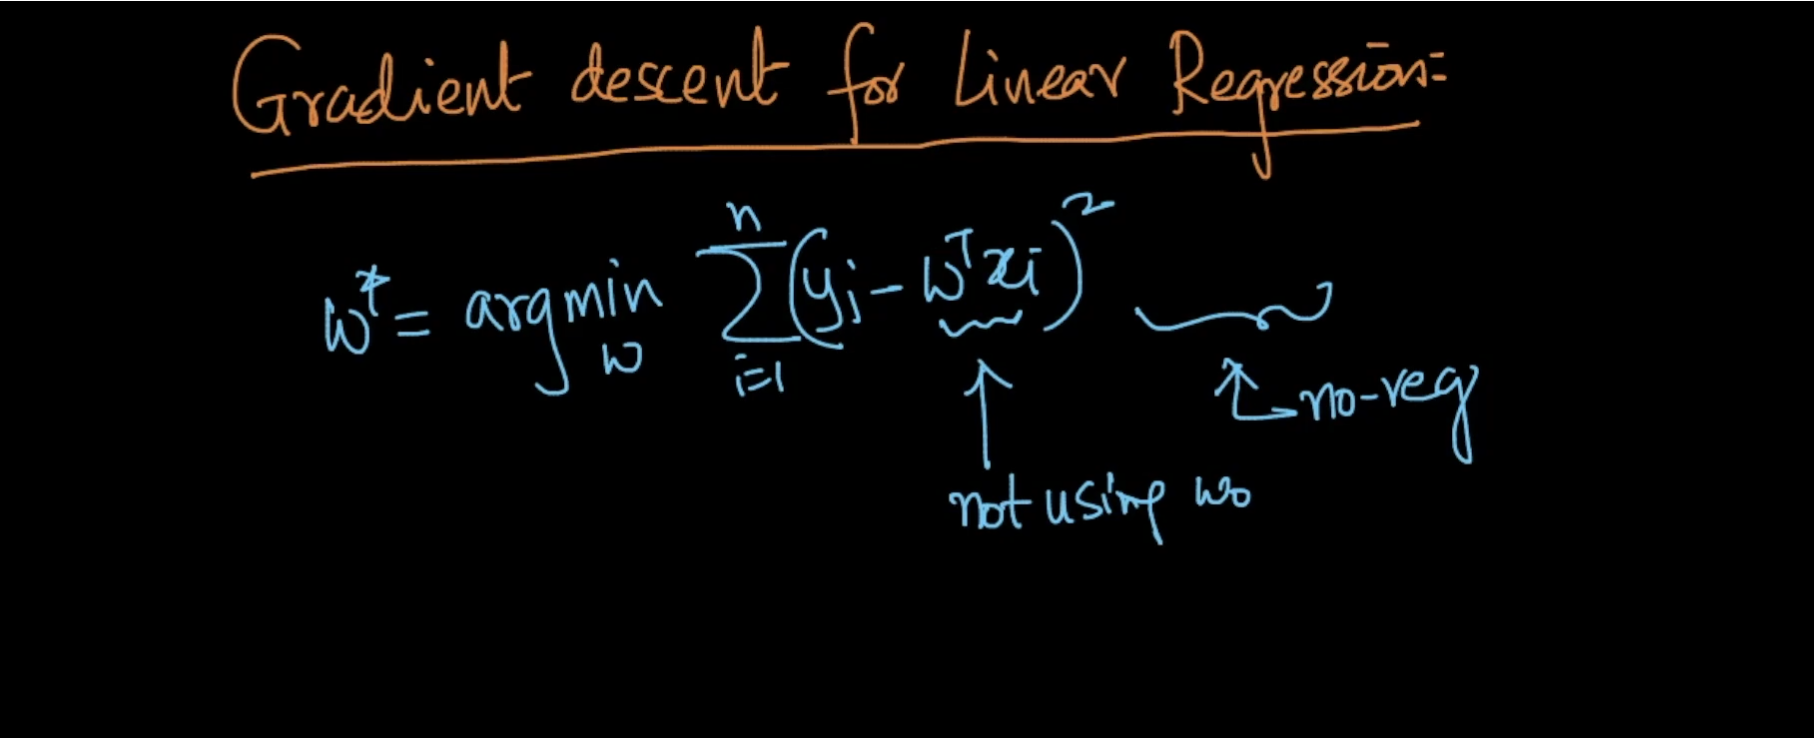 Gradient descent for Linear Regression:
w* = argmin_w Σ_{i=1}^{n} (yi - wᵀxi)²
no-reg
not using w₀